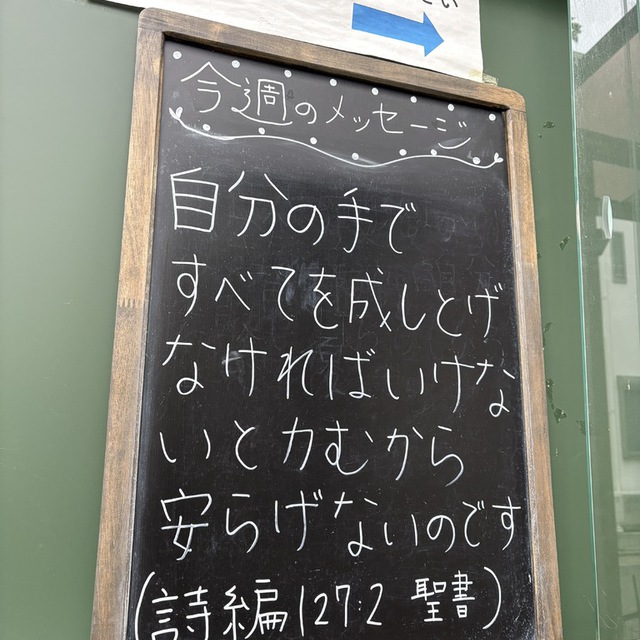 さい
今週のメッセージ
自分の手で
すべてを成しとげ
なければいけな
いと力むから
安らげないのです
(詩編127:2 聖書)